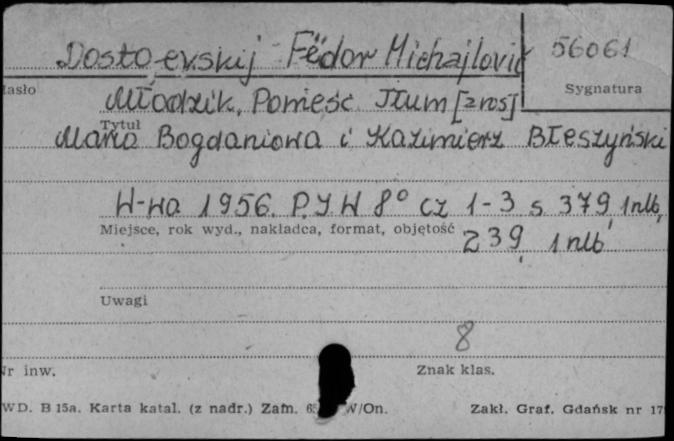 Dostoevskij Fëdor Michajlovič 56061
Hasło Sygnatura
Młodzik. Powieść. Tłum [z ros]
Tytuł
Maria Bogdaniowa i Kazimierz Błeszyński
W-wa 1956. P.I.W 8° cz 1-3 s. 379, 1 nlb,
Miejsce, rok wyd., nakładca, format, objętość
239, 1 nlb
Uwagi
8
Nr inw. Znak klas.
WD. B 15a. Karta katal. (z nadr.) Zam. W/On. Zakł. Graf. Gdańsk nr